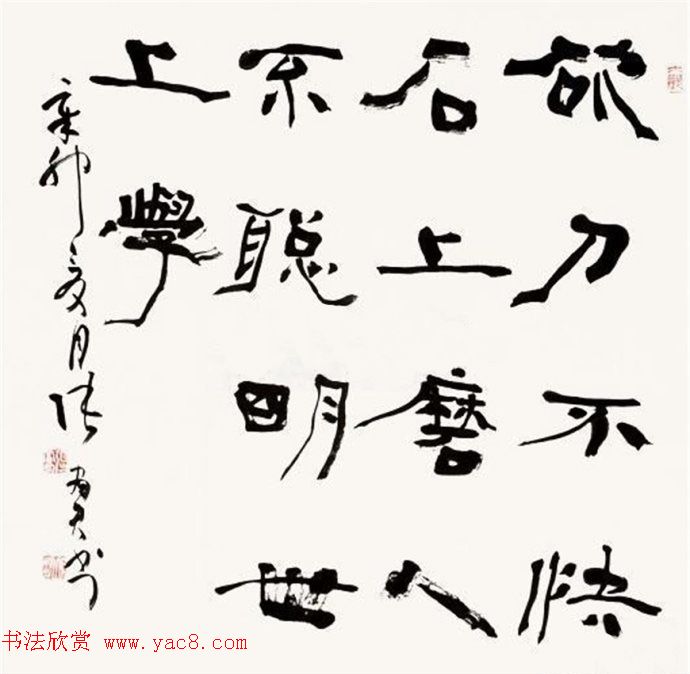 故刀不快
石上磨人
不聪明世
上學
辛卯夏月 书
书法欣赏 www.yac8.com